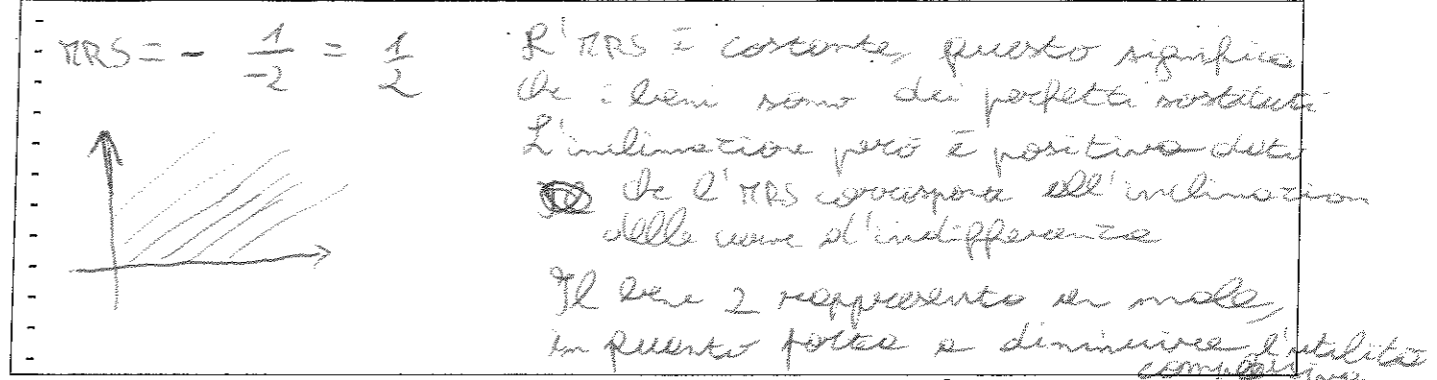 MRS = - 1/-2 = 1/2
L'MRS è costante, questo significa
che i beni sono dei perfetti sostituti
L'inclinazione però è positiva dato
che l'MRS corrisponde all'inclinazion
delle curve d'indifferenza
Il bene 2 rappresenta un male,
in quanto porta a diminuire l'utilità
complessiva